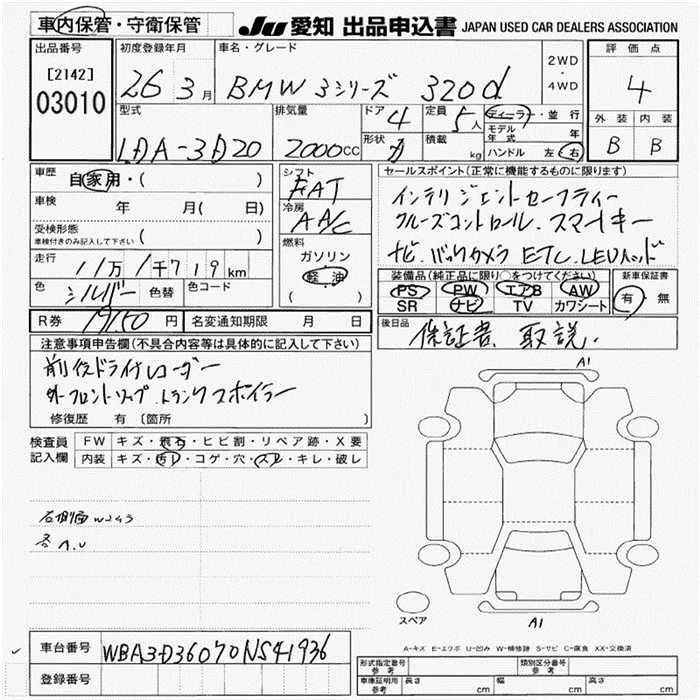 車内保管・守衛保管
JU 愛知 出品申込書 JAPAN USED CAR DEALERS ASSOCIATION
出品番号 初度登録年月 車名・グレード 2WD・4WD 評価点
[2142] 03010 26 3月 BMW 3シリーズ 320d 4
型式 排気量 ドア 4 定員 5人 ディーラー・並行 外装 内装
LDA-3D20 2000cc 形状 積載 kg モデル年式 年 B B
ハンドル 左・右
車歴 自家用・( ) シフト FAT セールスポイント(正常に機能するものに限ります)
車検 年 月( 日) 冷房 AAC インテリジェントセーフティー
受検形態 ( ) クルーズコントロール、スマートキー
車検付きのみ記入して下さい 燃料 ナビ、バックカメラ ETC、LEDヘッド
走行 11万1千719km ガソリン
軽・油
( )
装備品(純正品に限り○をつけてください) 新車保証書
色 シルバー 色替 色コード PS PW エアB AW 有・無
SR ナビ TV カワシート
R券 19150円 名変通知期限 月 日 後日品 保証書、取説、
注意事項申告欄(不具合内容等は具体的に記入して下さい)
前後ドライブレコーダー
外フロントリップ、トランクスポイラー
修復歴 有 〔箇所 〕
検査員 FW キズ・飛石・ヒビ割・リペア跡・X要
記入欄 内装 キズ・汚れ・コゲ・穴・スレ・キレ・破レ
右側面
各 A.U
A1
A1
スペア
A-キズ E-エクボ U-凹み W-補修跡 S-サビ C-腐食 XX-交換済
車台番号 WBA3D36070NS41936
登録番号
形式指定番号 参考 類別区分番号 参考
車庫証明用 参考 長さ cm 幅 cm 高さ cm